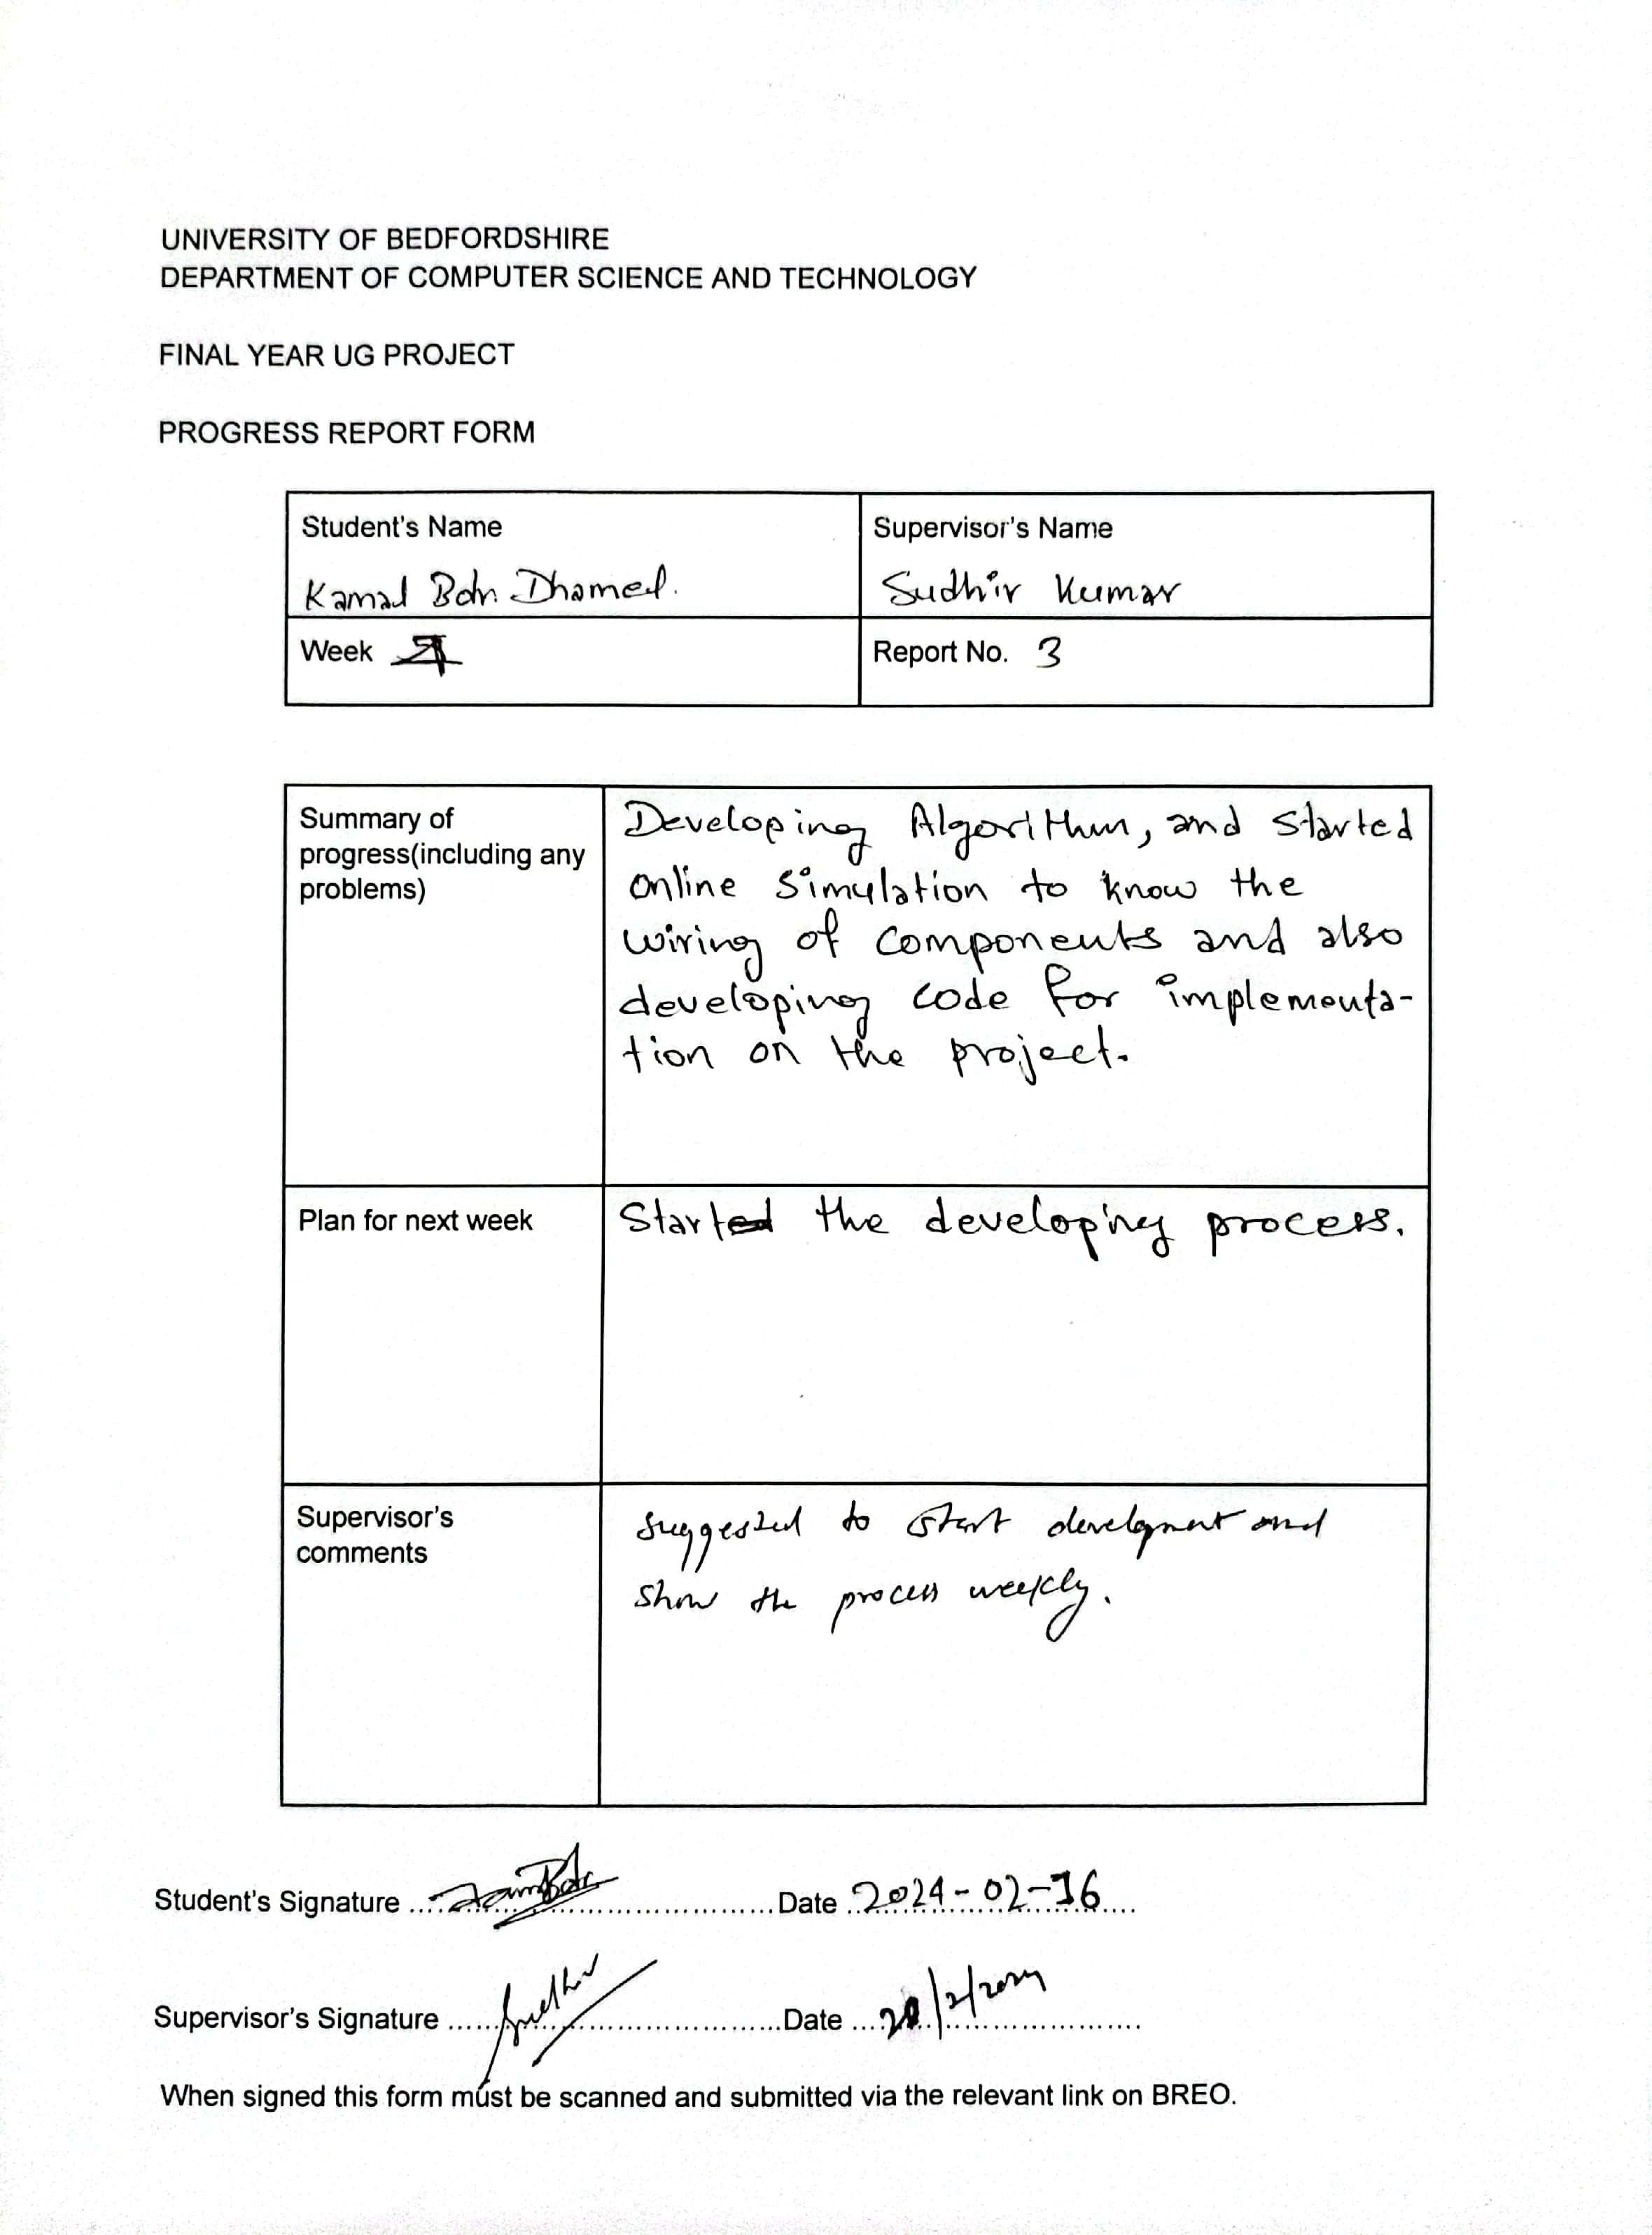 UNIVERSITY OF BEDFORDSHIRE
DEPARTMENT OF COMPUTER SCIENCE AND TECHNOLOGY
FINAL YEAR UG PROJECT
PROGRESS REPORT FORM
Student's Name
Kamal Bdr. Dhamel.
Supervisor's Name
Sudhir Kumar
Week
Report No. 3
Summary of
progress(including any
problems)
Developing Algorithm, and started
online simulation to know the
wiring of components and also
developing code for implementa-
tion on the project.
Plan for next week
Started the developing process.
Supervisor's
comments
Suggested to start development and
show the process weekly.
Student's Signature ........ Date 2024-02-16
Supervisor's Signature ........ Date /2/2024
When signed this form must be scanned and submitted via the relevant link on BREO.